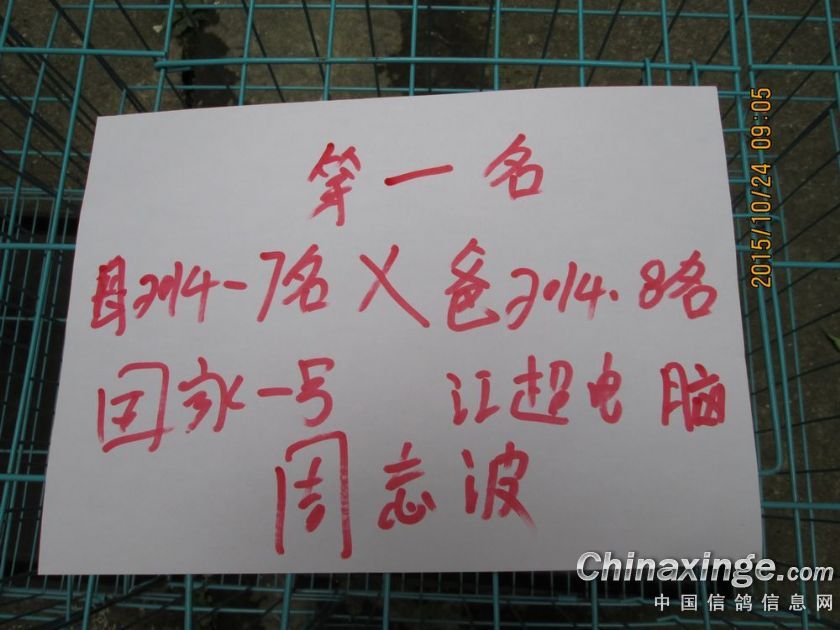 第一名
母2014-7名 X 爸2014.8名
回家一号 江超电脑
周志波
2015/10/24 09:05
Chinaxinge.com
中国信鸽信息网